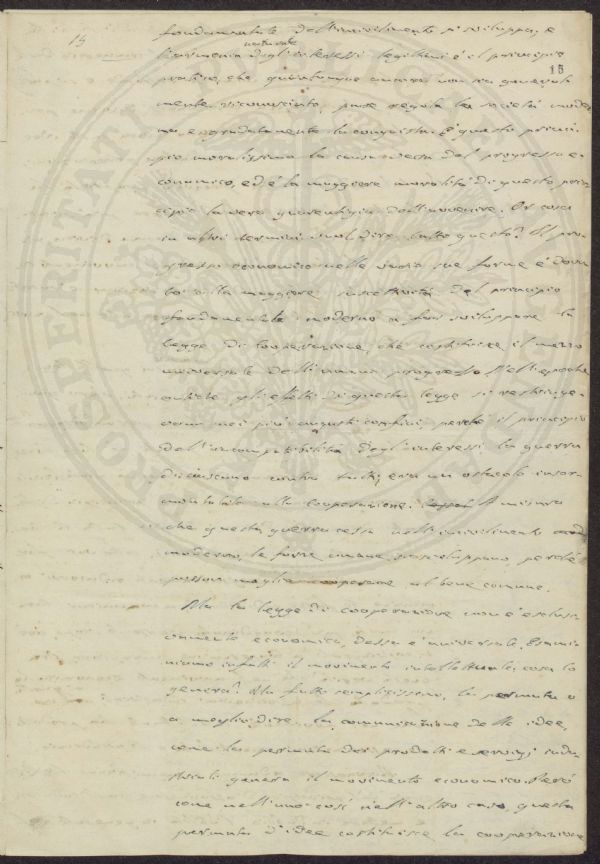 15
fondamentale dell'incivilimento si sviluppa, e
naturale
l'armonia degli interessi legittimi è il principio
15
pratico, che quantunque ancora non sia general
mente riconosciuto, pure regola la società moder
na, e gradatamente la conquista. È questo princi
pio moralissimo la causa vera del progresso e
conomico, ed è la maggiore moralità di questo prin
cipio la vera guarentigia dell'avvenire. Or cosa
in altri termini vuol dire tutto questo? Il pro
gresso economico nelle varie sue forme è dovu
to alla maggiore del principio
fondamentale moderno a far sviluppare la
legge di cooperazione, che costituisce il mezzo
universale dell'umano progresso. Nell'epoche
antiche gli effetti di questa legge si restringe
vano nei più angusti confini, perché il principio
dell'incompatibilità degli interessi la guerra
di ciascuno contro tutti, era un ostacolo insor
montabile alla cooperazione. A misura
che questa guerra cessa nell'incivilimento
moderno, le forze umane si sviluppano, perché
posson meglio cooperare al bene comune.
Ma la legge di cooperazione non è esclusi
vamente economica, dessa è universale. Esami
niamo infatti il movimento intellettuale, cosa lo
genera? Un fatto semplicissimo, la permuta o
a meglio dire la comunicazione delle idee,
come la permuta dei prodotti e servigi indu
striali genera il movimento economico. Però
come nell'uno così nell'altro caso, questa
permuta d'idee costituisce la cooperazione